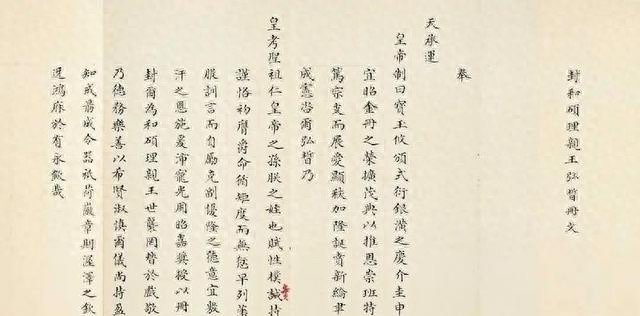 封和碩理親王弘晳冊文
奉
天承運
皇帝制曰寶玉攸頒式衍銀潢之慶介圭申
宜昭金冊之榮擴茂典以推恩崇班特
篤宗支而展愛顯秩加隆誕賁新綸聿
成憲咨爾弘晳乃
皇考聖祖仁皇帝之孫朕之姪也賦性樸誠持
謹恪初膺爵命循矩度而無愆早列藩
服訓言而自勵克副優隆之德意宜敷
汗之恩施爰沛寵光用昭嘉奬授以冊
封爾為和碩理親王世襲罔替於戲敬
乃德務樂善以希賢淑慎爾儀尚持盈
知戒蓊成令器祇荷徽章則渥澤之欽
迓鴻庥於有永欽哉